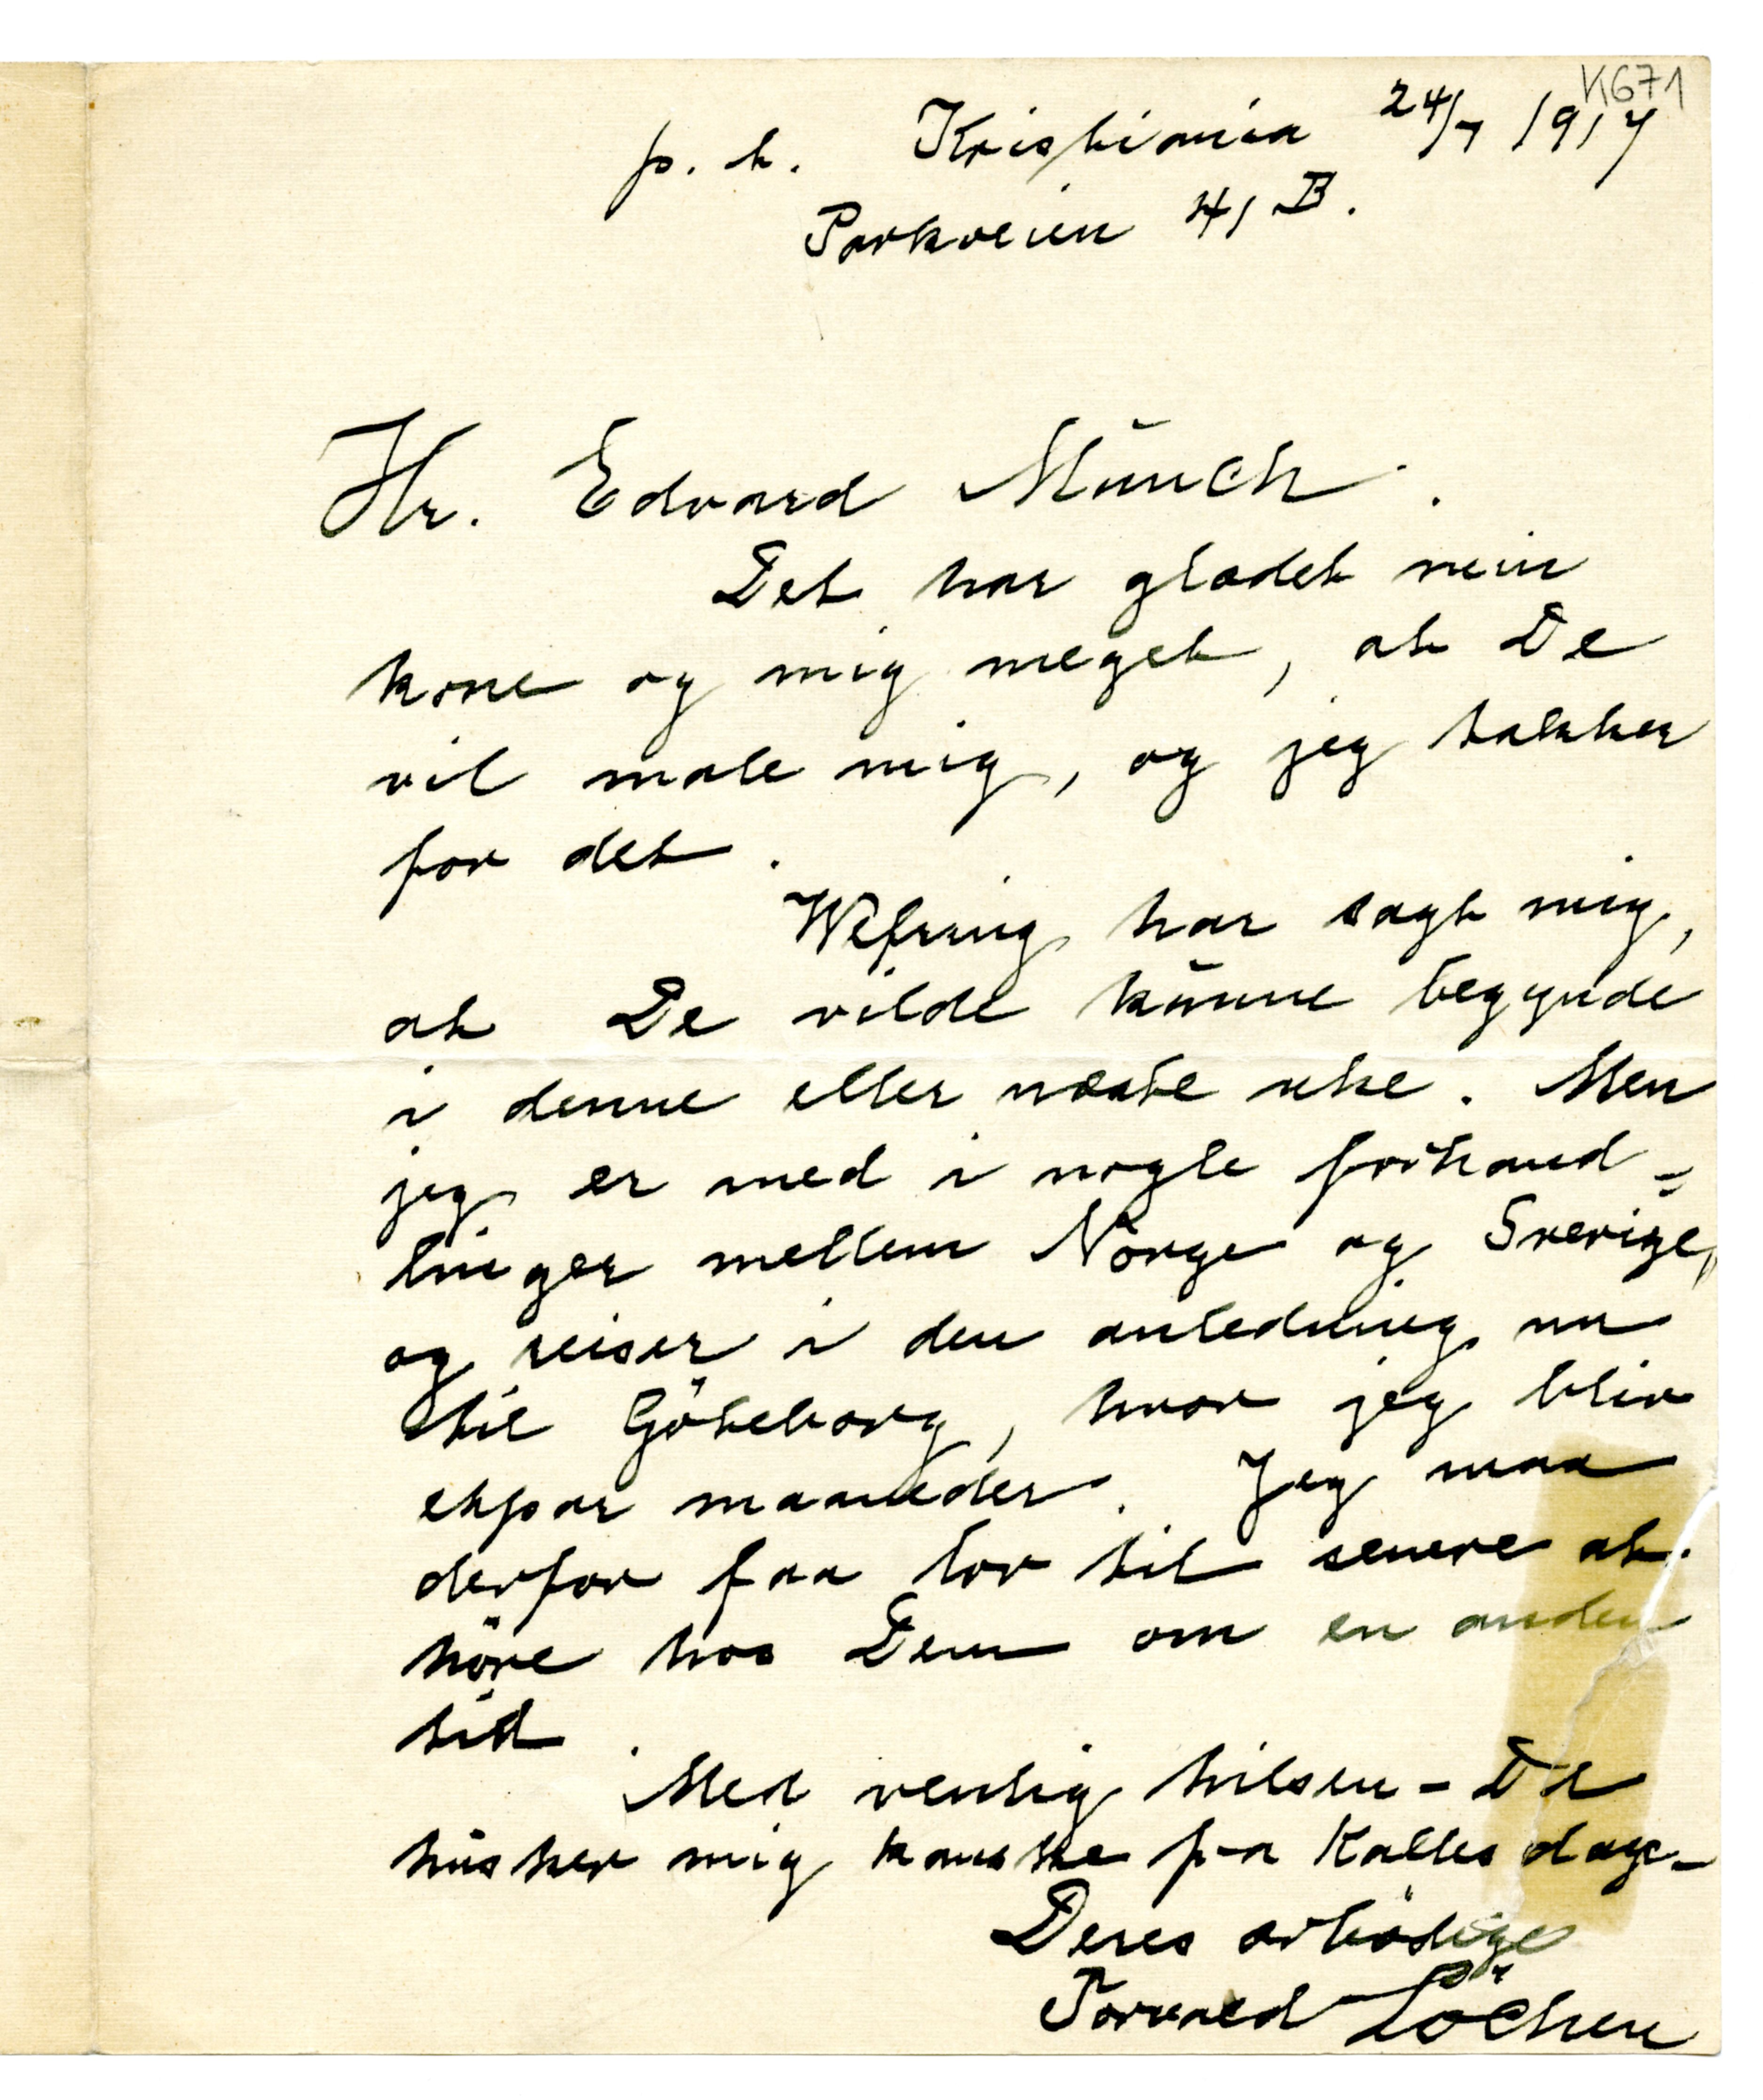 K671
p. t. Kristiania 24/7 1917
Parkveien 41 B.
Hr. Edvard Munch.
Det har glædet min
kone og mig meget, at De
vil male mig, og jeg takker
for det.
Wefring har sagt mig,
at De vilde kunne begynde
i denne eller næste uke. Men
jeg er med i nogle forhand-
linger mellem Norge og Sverige,
og reiser i den anledning nu
til Göteborg, hvor jeg blir
etpar maaneder. Jeg maa
derfor faa lov til senere at
höre hos Dem om en anden
tid.
Med venlig hilsen - De
husker mig kanske fra Kalles dage -
Deres ærbödige
Torvald Löchen